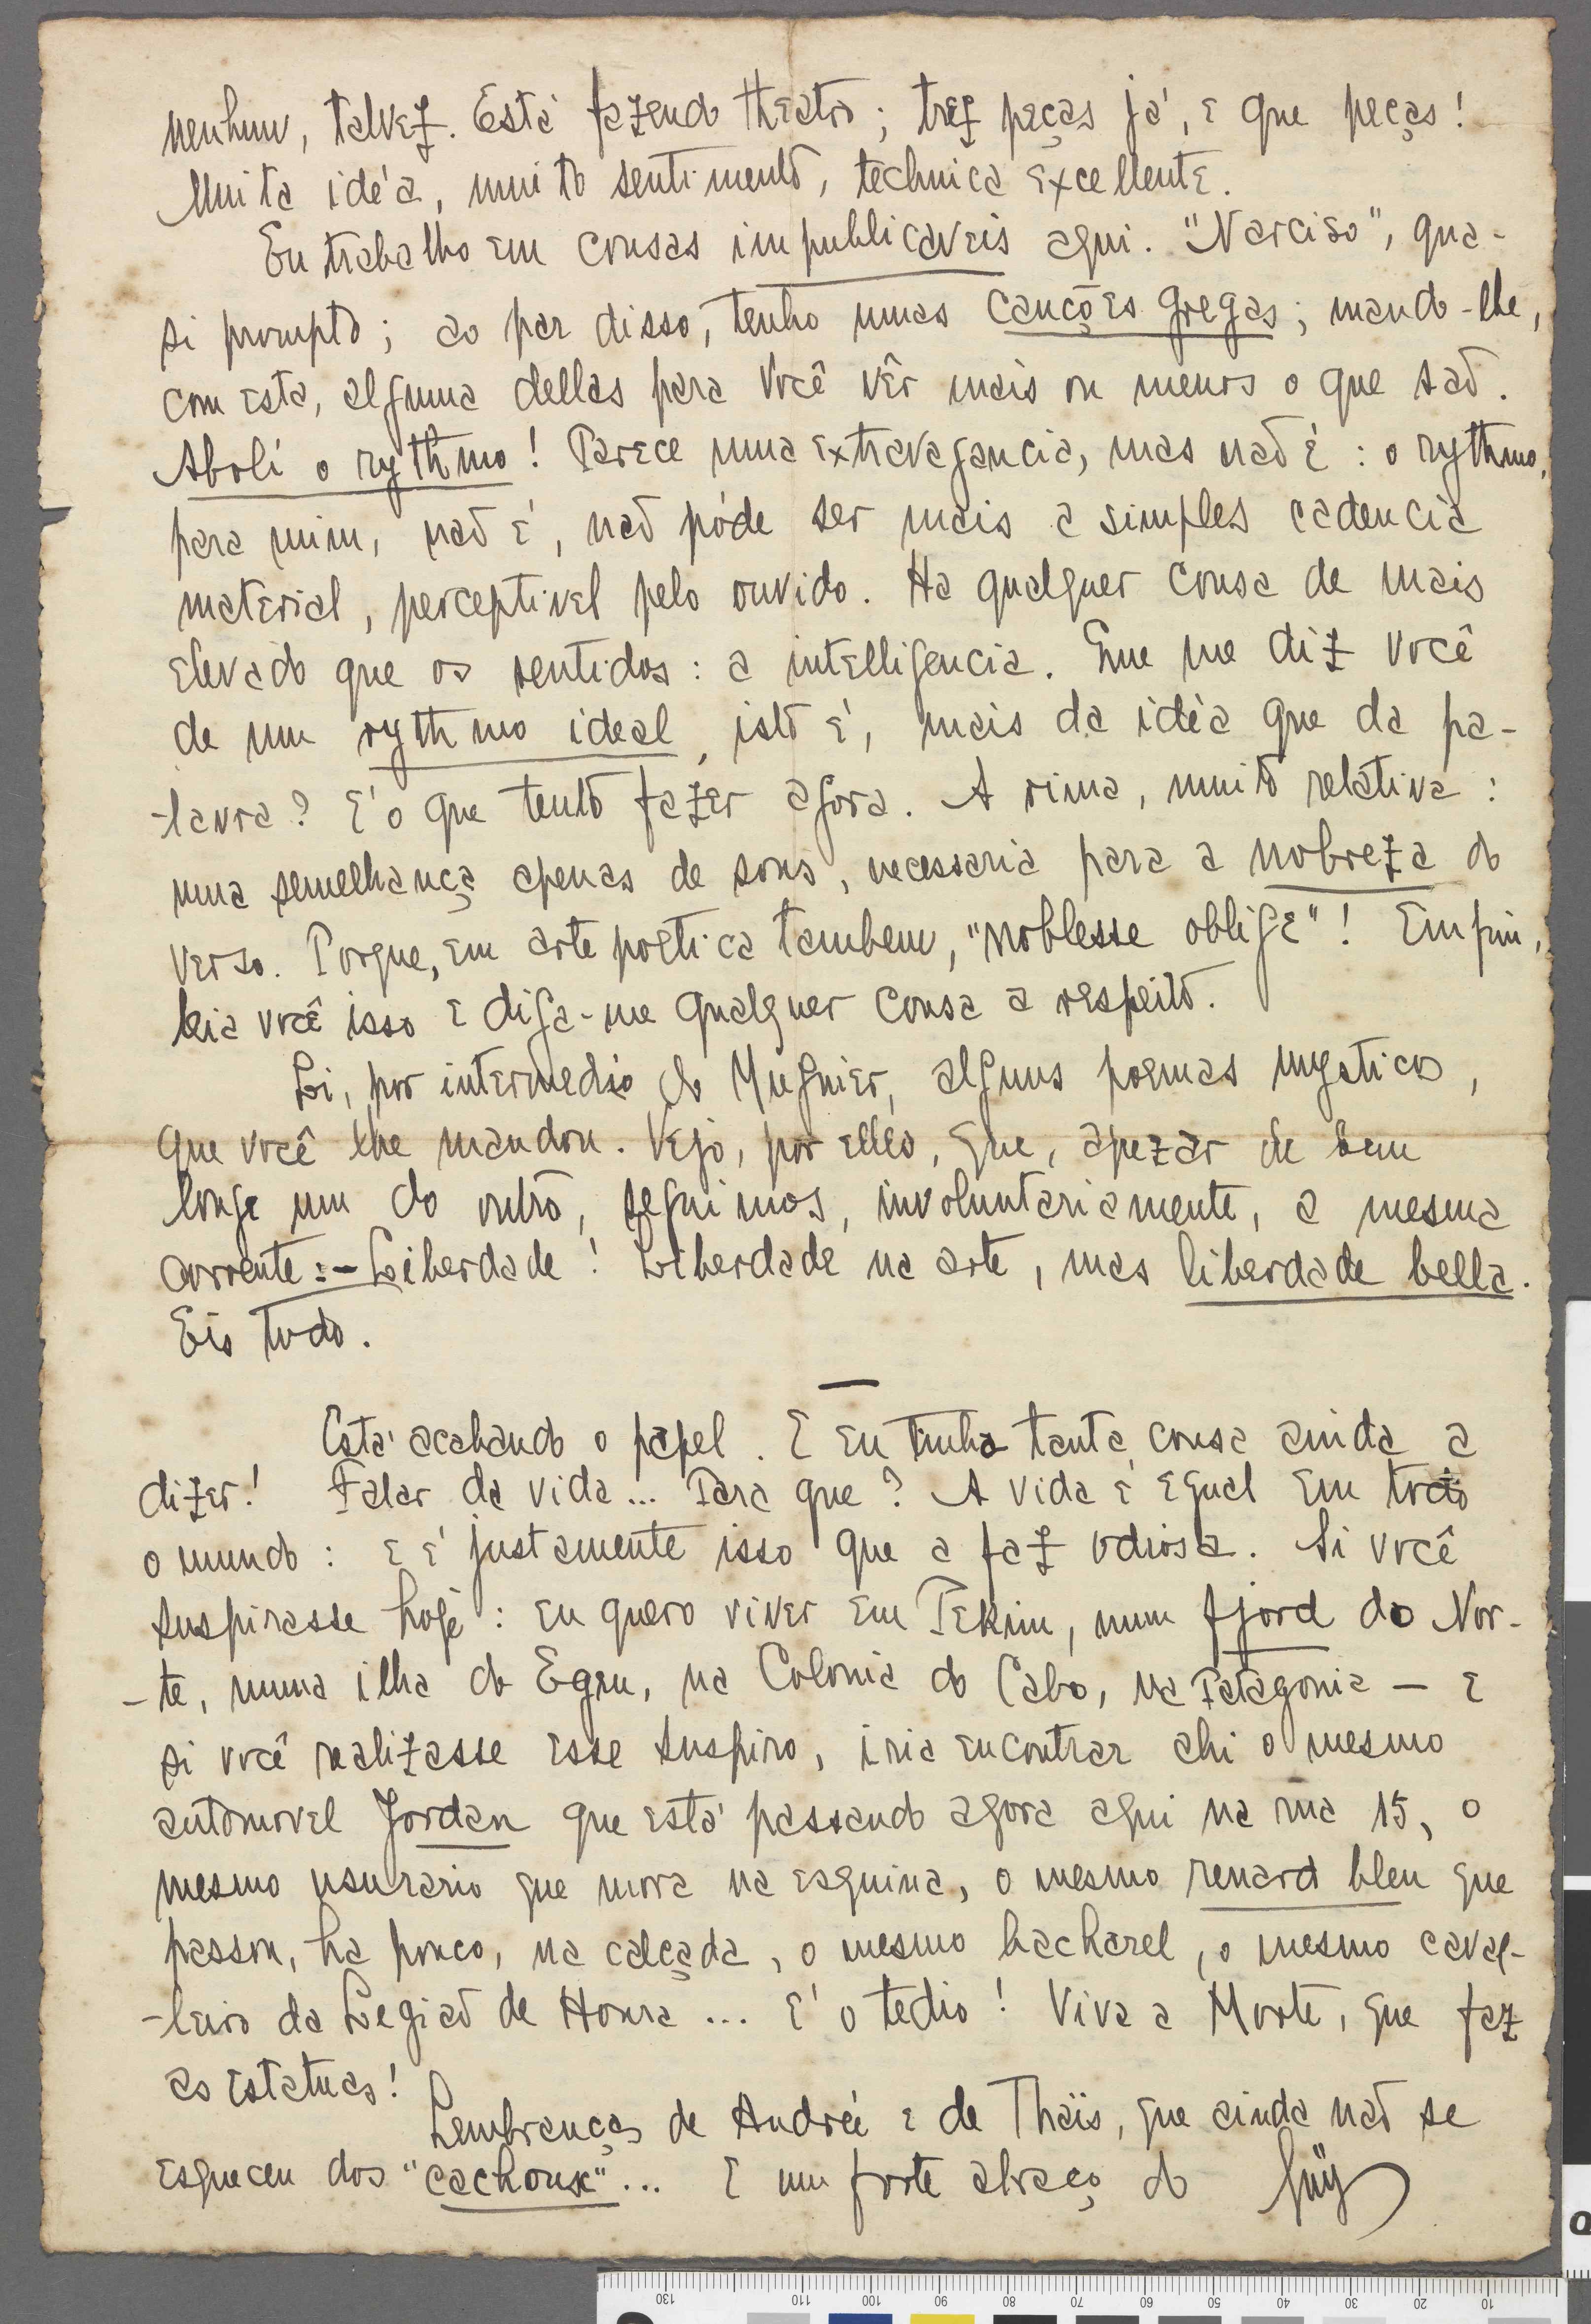 nenhum, talvez. Está fazendo theatro; trez peças já, e que peças!
Muita idéa, muito sentimento, technica excellente.
Eu trabalho em cousas impublicaveis aqui. "Narciso", qua-
si prompto; ao par disso, tenho umas canções gregas; mando-lhe,
com esta, alguma dellas para você vêr mais ou menos o que são.
Abolí o rythmo! Parece uma extravagancia, mas não é: o rythmo,
para mim, não é, não póde ser mais a simples cadencia
material, perceptivel pelo ouvido. Ha qualquer cousa de mais
elevado que os sentidos: a intelligencia. Que me diz você
de um rythmo ideal, isto é, mais da idéa que da pa-
-lavra? E' o que tento fazer agora. A rima, muito relativa:
uma semelhança apenas de sons, necessaria para a nobreza do
verso. Porque, em arte poetica tambem, "noblesse oblige"! Emfim,
leia você isso e diga-me qualquer cousa a respeito.
Li, por intermedio do Mugnier, alguns poemas mysticos,
que você lhe mandou. Vejo, por elles, que, apezar de bem
longe um do outro, seguimos, involuntariamente, a mesma
corrente: - Liberdade! Liberdade na arte, mas liberdade bella.
Eis tudo.
—
Está acabando o papel. E eu tinha tanta cousa ainda a
dizer! Falar da vida... Para que? A vida é egual em todo
o mundo: e é justamente isso que a faz odiosa. Si você
suspirasse hoje: eu quero viver em Pekim, num fjord do Nor-
-te, numa ilha do Egeu, na Colonia do Cabo, na Patagonia — e
si você realizasse esse suspiro, iria encontrar ahi o mesmo
automovel Jordan que está passando agora aqui na rua 15, o
mesmo usurario que mora na esquina, o mesmo renard bleu que
passou, ha pouco, na calçada, o mesmo bacharel, o mesmo caval-
-leiro da Legião de Honra... E' o tedio! Viva a Morte, que faz
as estatuas!
Lembranças de Andrée e de Thaïs, que ainda não se
esqueceu dos "cachoux"... E um forte abraço do Guy
130 110 100 90 80 70 60 50 40 30 20 10